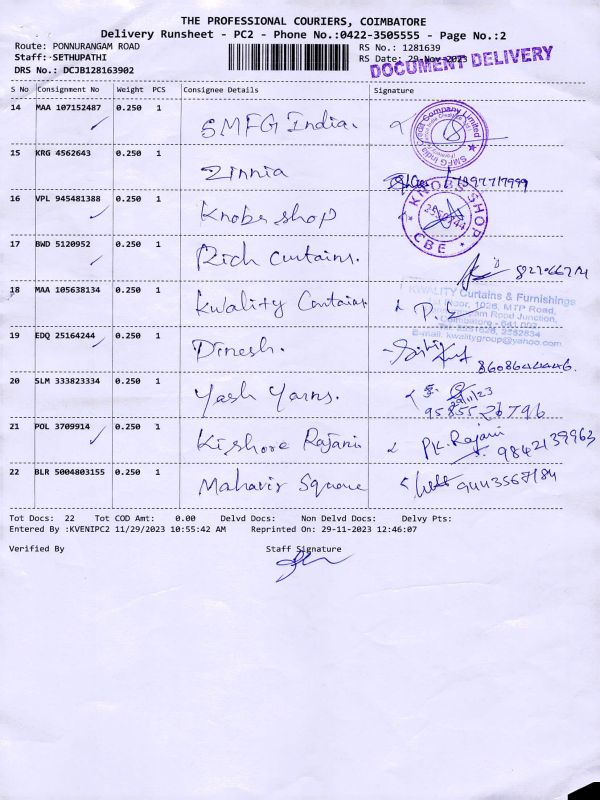 THE PROFESSIONAL COURIERS, COIMBATORE
Delivery Runsheet - PC2 - Phone No.:0422-3505555 - Page No.:2
Route: PONNURANGAM ROAD
RS No.: 1281639
Staff: SETHUPATHI
RS Date: 29-Nov-2023
DRS No.: DCJB128163902
DOCUMENT DELIVERY
S No Consignment No Weight PCS Consignee Details Signature
14 MAA 107152487 0.250 1 SMFG India.
SMFG India Credit Company Limited
15 KRG 4562643 0.250 1 Zinnia
16 VPL 945481388 0.250 1 Knobs shop
KNOBS SHOP
CBE
17 BWD 5120952 0.250 1 Rich Curtains.
18 MAA 105638134 0.250 1 Kwality Contains
KWALITY Curtains & Furnishings
Floor, 1026, MTP Road,
Road Junction,
Coimbatore - 641 002
E-mail: kwalitygroup@yahoo.com
19 EDQ 25164244 0.250 1 Dinesh.
20 SLM 333823334 0.250 1 Yash Yarns.
29/11/23
95855 26796
21 POL 3709914 0.250 1 Kishore Rajani
P.K. Rajani
9842139963
22 BLR 5004803155 0.250 1 Mahavir Square
9443567184
Tot Docs: 22 Tot COD Amt: 0.00 Delvd Docs: Non Delvd Docs: Delvy Pts:
Entered By :KVENIPC2 11/29/2023 10:55:42 AM Reprinted On: 29-11-2023 12:46:07
Verified By Staff Signature